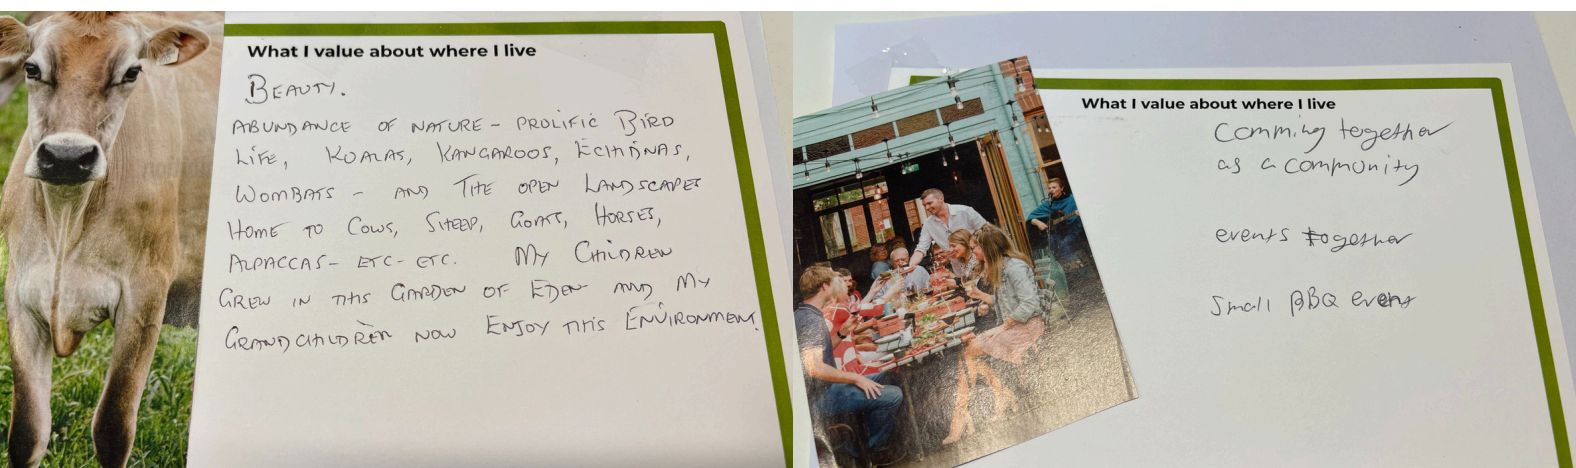 What I value about where I live
BEAUTY.
ABUNDANCE OF NATURE - PROLIFIC BIRD
LIFE, KOALAS, KANGAROOS, ECHIDNAS,
WOMBATS - AND THE OPEN LANDSCAPES
HOME TO COWS, SHEEP, GOATS, HORSES,
ALPACCAS - ETC - ETC. MY CHILDREN
GREW IN THIS GARDEN OF EDEN AND MY
GRANDCHILDREN NOW ENJOY THIS ENVIRONMENT.
What I value about where I live
Comming together
as a community
events together
Small BBQ event